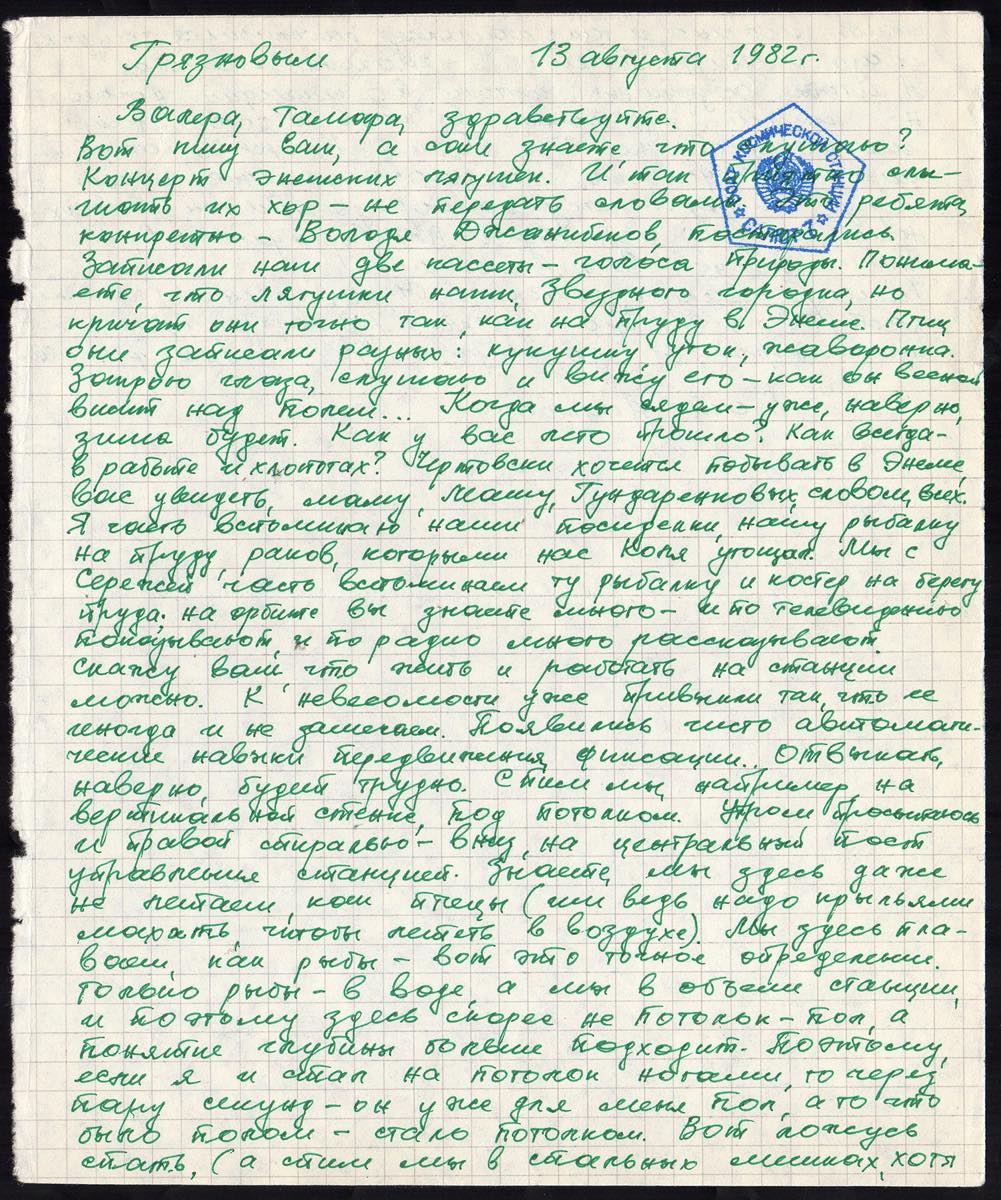 Грязновым 13 августа 1982 г.
Валера, Тамара, здравствуйте.
Вот пишу вам, а сам знаете что слушаю?
Концерт энемских лягушек. И так приятно слы-
шать их хор – не передать словами. Это ребята,
конкретно – Володя Джанибеков, постарались.
Записали нам две кассеты – голоса природы. Понима-
ете, что лягушки наши, Звездного городка, но
кричат они точно так, как на пруду в Энеме. Птиц
они записали разных: кукушку, уток, жаворонка.
Закрою глаза, слушаю и вижу его – как он весной
висит над полем... Когда мы сядем – уже, наверно,
зима будет. Как у вас лето прошло? Как всегда –
в работе и хлопотах? Чертовски хочется побывать в Энеме,
вас увидеть, маму, Машу, Гундаренковых, словом, всех.
Я часто вспоминаю наши посиделки, нашу рыбалку
на пруду, раков, которыми нас Коля угощал. Мы с
Сережей часто вспоминаем ту рыбалку и костер на берегу
пруда. На орбите вы знаете много – и по телевидению
показывают, и по радио много рассказывают.
Скажу вам, что жить и работать на станции
можно. К невесомости уже привыкли так, что ее
иногда и не замечаем. Появились чисто автомати-
ческие навыки передвижения, фиксации. Отвыкать,
наверно, будет трудно. Спим мы, например, на
вертикальной стенке, под потолком. Утром просыпаюсь
и правой спиралью – вниз, на центральный пост
управления станцией. Знаете, мы здесь даже
не летаем, как птицы (им ведь надо крыльями
махать, чтобы лететь в воздухе). Мы здесь пла-
ваем, как рыбы – вот это точное определение.
Только рыбы – в воде, а мы в объеме станции,
и поэтому здесь скорее не потолок – пол, а
понятие глубины больше подходит. Поэтому,
если я и стал на потолок ногами, то через
пару секунд – он уже для меня пол, а то что
было полом – стало потолком. Вот ложусь
спать, (а спим мы в спальных мешках, хотя
БОРТ КОСМИЧЕСКОЙ СТАНЦИИ
САЛЮТ-7